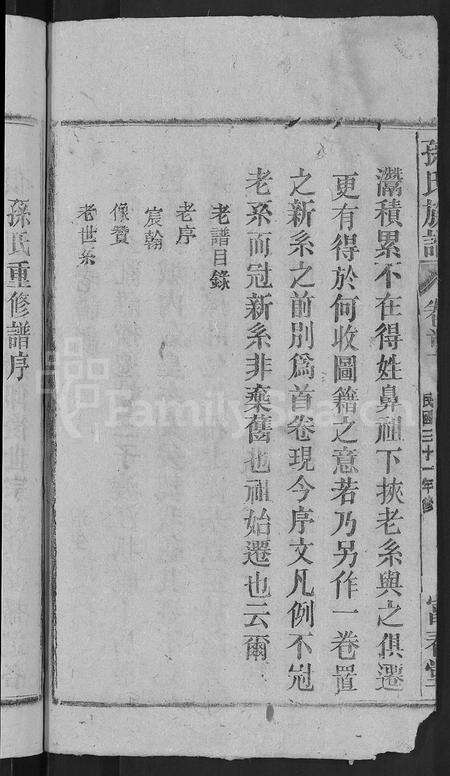 孫氏族譜 卷首 民國三十一年修 富春堂
灊積累不在得姓鼻祖下挾老系與之俱遷
更有得於何收圖籍之意若乃另作一卷置
之新系之前別爲首卷現今序文凡例不冠
老系而冠新系非棄舊也祖始遷也云爾
老譜目錄
老序
宸翰
像贊
老世系
孫氏重修譜序
FamilySearch